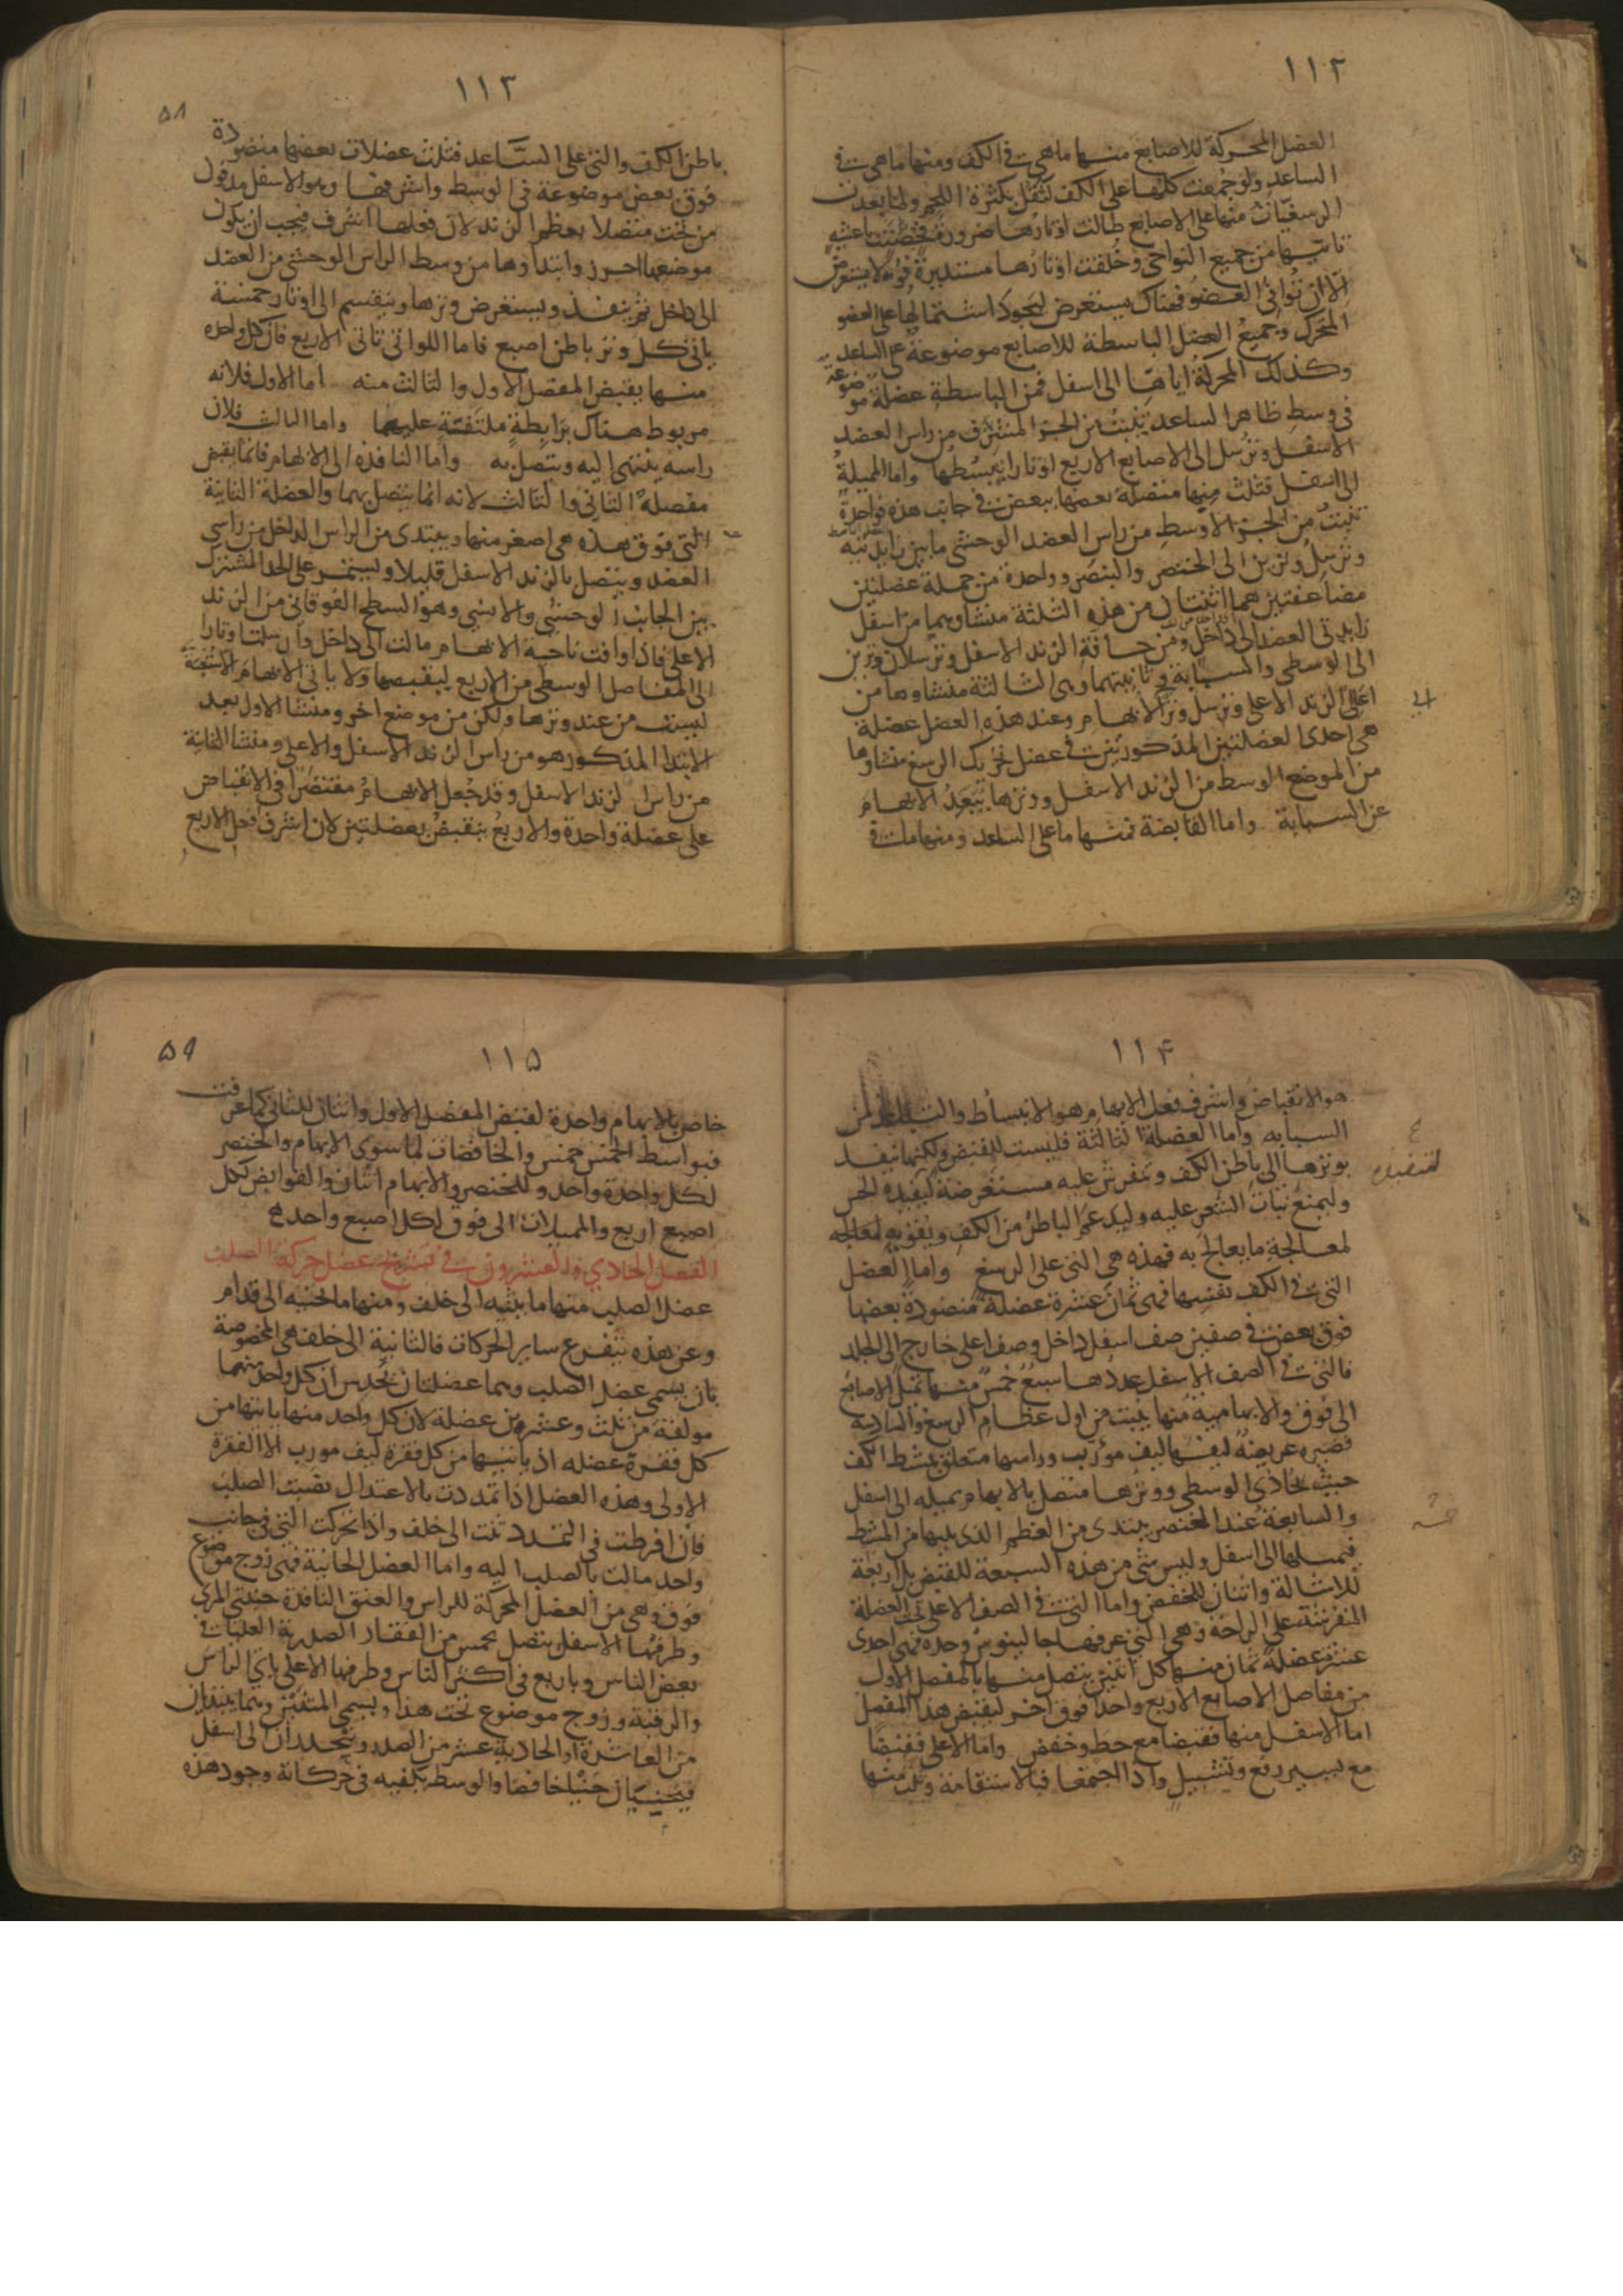 ١١٢
العضل المحركة للاصابع منها ماهى فى الكف ومنها ماهى فى
الساعد ولو جمعت كلها على الكف لثقل بكثرة اللحم ولما بعدت
الرسغيات منها على الاصابع طالت اوتارها ضرورة فحصنت باغشية
تاتيها من جميع النواحى وخلقت اوتارها مستديرة قوية لا يستعرض
الا ان توافى العضو فهناك يستعرض ليجود اشتمالها على العضو
المحرك وجميع العضل الباسطة للاصابع موضوعة على الساعد
وكذلك المحركة اياها الى اسفل فمن الباسطة عضلة موضوعة
فى وسط ظاهر الساعد تنبت من الجزء المشرف من راس العضد
الاسفل وترسل الى الاصابع الاربع اوتارا يبسطها واما المميلة
الى اسفل فثلث منها متصلة بعضها ببعض فى جانب هذه فواحدة
تنبت من الجزء الاوسط من راس العضد الوحشى ما بين زايدتيه
وترسل وترين الى الخنصر والبنصر وواحدة من جملة عضلتين
مضاعفتين هما اثنتان من هذه الثلثة منشاوهما من اسفل
زايدتى العضد الى داخل ومن حافة الزند الاسفل وترسلان وترين
الى الوسطى والسبابة وثانيتهما وهى الثالثة منشاوها من
اعلى الزند الاعلى وترسل وترا الابهام وعند هذه العضل عضلة
هى احدى العضلتين المذكورتين فى عضل تحريك الرسغ منشاوها
من الموضع الوسط من الزند الاسفل ووترها يبعد الابهام
عن السبابة واما القابضة فمنها ما على الساعد ومنها ما فى
١١٣
٥٨
باطن الكف والتى على الساعد فثلث عضلات بعضها منضودة
فوق بعض موضوعة فى الوسط واشرفها وهو الاسفل مدفون
من تحت متصلا بعظم الزند لان فعلها اشرف فيجب ان يكون
موضعها احرز وابتداوها من وسط الراس الوحشى من العضد
الى داخل ثم ينفذ ويستعرض وترها وينقسم الى اوتار خمسة
ياتى كل وتر باطن اصبع فاما اللواتى تاتى الاربع فان كل واحدة
منها يقبض المفصل الاول والثالث منه اما الاول فلانه
مربوط هناك برابطة ملتفة عليهما واما الثالث فلان
راسه ينتهى اليه ويتصل به واما النافذة الى الابهام فانما يقبض
مفصله الثانى والثالث لانه انما يتصل بهما والعضلة الثانية
التى فوق هذه هى اصغر منها ويبتدى من الراس الداخل من راسى
العضد ويتصل بالزند الاسفل قليلا ويستمر على الحد المشترك
بين الجانب الوحشى والانسى وهو السطح الفوقانى من الزند
الاعلى فاذا وافت ناحية الابهام مالت الى داخل وارسلت اوتارا
الى المفاصل الوسطى من الاربع ليقبضها ولا ياتى الابهام الا شعبة
ليست من عند وترها ولكن من موضع اخر ومنشا الاول بعد
الابتدا المذكور هو من راس الزند الاسفل والاعلى ومنشا الثانية
من راس الزند الاسفل وقد جعل الابهام مقتصرا فى الانقباض
على عضلة واحدة والاربع ينقبض بعضلتين لان اشرف فعل الاربع
١١٤
هو الانقباض واشرف فعل الابهام هو الانبساط والتباعد من
السبابه واما العضلة الثالثة فليست للقبض ولكنها ينفد
بوترها الى باطن الكف وتنفرش عليه مستعرضة ليفيده الحس
وليمنع نبات الشعر عليه وليدعم الباطن من الكف ويقويه لمعالجه
لمعالجة ما يعالج به فهذه هى التى على الرسغ واما العضل
التى فى الكف نفسها فهى ثمان عشرة عضلة منضودة بعضها
فوق بعض فى صفين صف اسفل داخل وصف اعلى خارج الى الجلد
فالتى فى الصف الاسفل عددها سبع خمس منها تميل الاصابع
الى فوق والابهامية منها ينبت من اول عظام الرسغ والسادسة
قصيره عريضة ليفها ليف مورب وراسها متعلق بمشط الكف
حيث تحاذى الوسطى ووترها متصل بالابهام يميله الى اسفل
والسابعة عند الخنصر يبتدى من العظم الذى يليها من المشط
فيميلها الى اسفل وليس شى من هذه السبعة للقبض بل اربعة
للاشالة واثنتان للخفض واما التى فى الصف الاعلى تحت العضلة
المنفرشة على الراحة وهى التى عرفها جالينوس وحده فهى احدى
عشرة عضلة ثمان منها كل اثنتين يتصل منها بالمفصل الاول
من مفاصل الاصابع الاربع واحدا فوق اخر ليقبض هذا المفصل
اما الاسفل منها فقبضا مع حط وخفض واما الاعلى فقبضا
مع يسير رفع وتشييل واذا اجتمعا فبالاستقامة وثلث منها
١١٥
٥٩
خاص بالابهام واحدة لقبض المفصل الاول واثنتان للثانى كما عرفت
فبواسط الخمس خمس والخافضات لما سوى الابهام والخنصر
لكل واحدة واحد وللخنصر والابهام اثنان والقوابض لكل
اصبع اربع والمميلات الى فوق لكل اصبع واحده
الفصل الحادي والعشرون فى تشريح عضل حركة الصلب
عضل الصلب منها ما يثنيه الى خلف ومنها ما يحنيه الى قدام
وعن هذه يتفرع ساير الحركات فالثانية الى خلف هى المخصوصة
بان يسمى عضل الصلب وهما عضلتان يحدس ان كل واحد منهما
مولفة من ثلث وعشرين عضلة لان كل واحد منها ياتيها من
كل فقرة عضله اذ ياتيها من كل فقرة ليف مورب الا الفقرة
الاولى وهذه العضل اذا تمددت بالاعتدال نصبت الصلب
فان افرطت فى التمدد ثنت الى خلف واذا تحركت التى فى جانب
واحد مالت بالصلب اليه واما العضل الحانية فهى زوج موضوع
فوق وهى من العضل المحركة للراس والعنق النافذة جنبتى المرى
وطرفها الاسفل يتصل بخمس من الفقار الصدرية العليا فى
بعض الناس وباربع فى اكثر الناس وطرفها الاعلى ياتى الراس
والرقبة وزوج موضوع تحت هذا ويسمى المتنين وهما يبتديان
من العاشرة او الحادية عشر من الصدر وينحدران الى اسفل
فيحنيان حنيا خافضا والوسط يكفيه فى حركاته وجود هذه